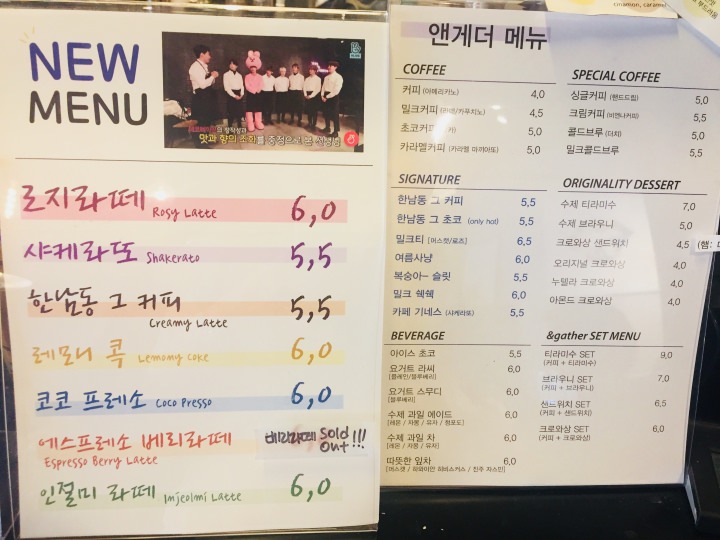 NEW
MENU
맛과 향의 조화를
로지라떼 Rosy Latte 6,0
샤케라또 Shakerato 5,5
한남동 그 커피 5,5
Creamy Latte
레모니 콕 Lemony Coke 6,0
코코 프레소 Coco Presso 6,0
에스프레소 베리라떼 베리라떼 Sold Out!!!
Espresso Berry Latte
인절미 라떼 Injeolmi Latte 6,0
cinamon, caramel
앤게더 메뉴
COFFEE
커피 (아메리카노) 4,0
밀크커피 (라떼/카푸치노) 4,5
초코커피 5,0
카라멜커피 (카라멜 마끼아또) 5,0
SPECIAL COFFEE
싱글커피 (핸드드립) 5,0
크림커피 (비엔나커피) 5,5
콜드브루 (더치) 5,0
밀크콜드브루 5,5
SIGNATURE
한남동 그 커피 5,5
한남동 그 초코 (only hot) 5,5
밀크티 [머스캣/로즈] 6,5
여름사냥 6,0
복숭아- 슬릿 5,5
밀크 쉑쉑 6,0
카페 기네스 (샤케라또) 5,5
ORIGINALITY DESSERT
수제 티라미수 7,0
수제 브라우니 5,0
크로와상 샌드위치 4,5 (햄:
오리지널 크로와상 4,0
누텔라 크로와상 4,0
아몬드 크로와상 4,0
BEVERAGE
아이스 초코 5,5
요거트 라씨 6,0
[플레인/블루베리]
요거트 스무디 6,0
[블루베리]
수제 과일 에이드 6,0
[레몬 / 자몽 / 유자 / 청포도]
수제 과일 차 6,0
[레몬 / 자몽 / 유자]
따뜻한 잎차 6,0
[머스캣 / 하와이안 히비스커스 / 진주 자스민]
&gather SET MENU
티라미수 SET 9,0
(커피 + 티라미수)
브라우니 SET 7,0
(커피 + 브라우니)
샌드위치 SET 6,5
(커피 + 샌드위치)
크로와상 SET 6,0
(커피 + 크로와상)